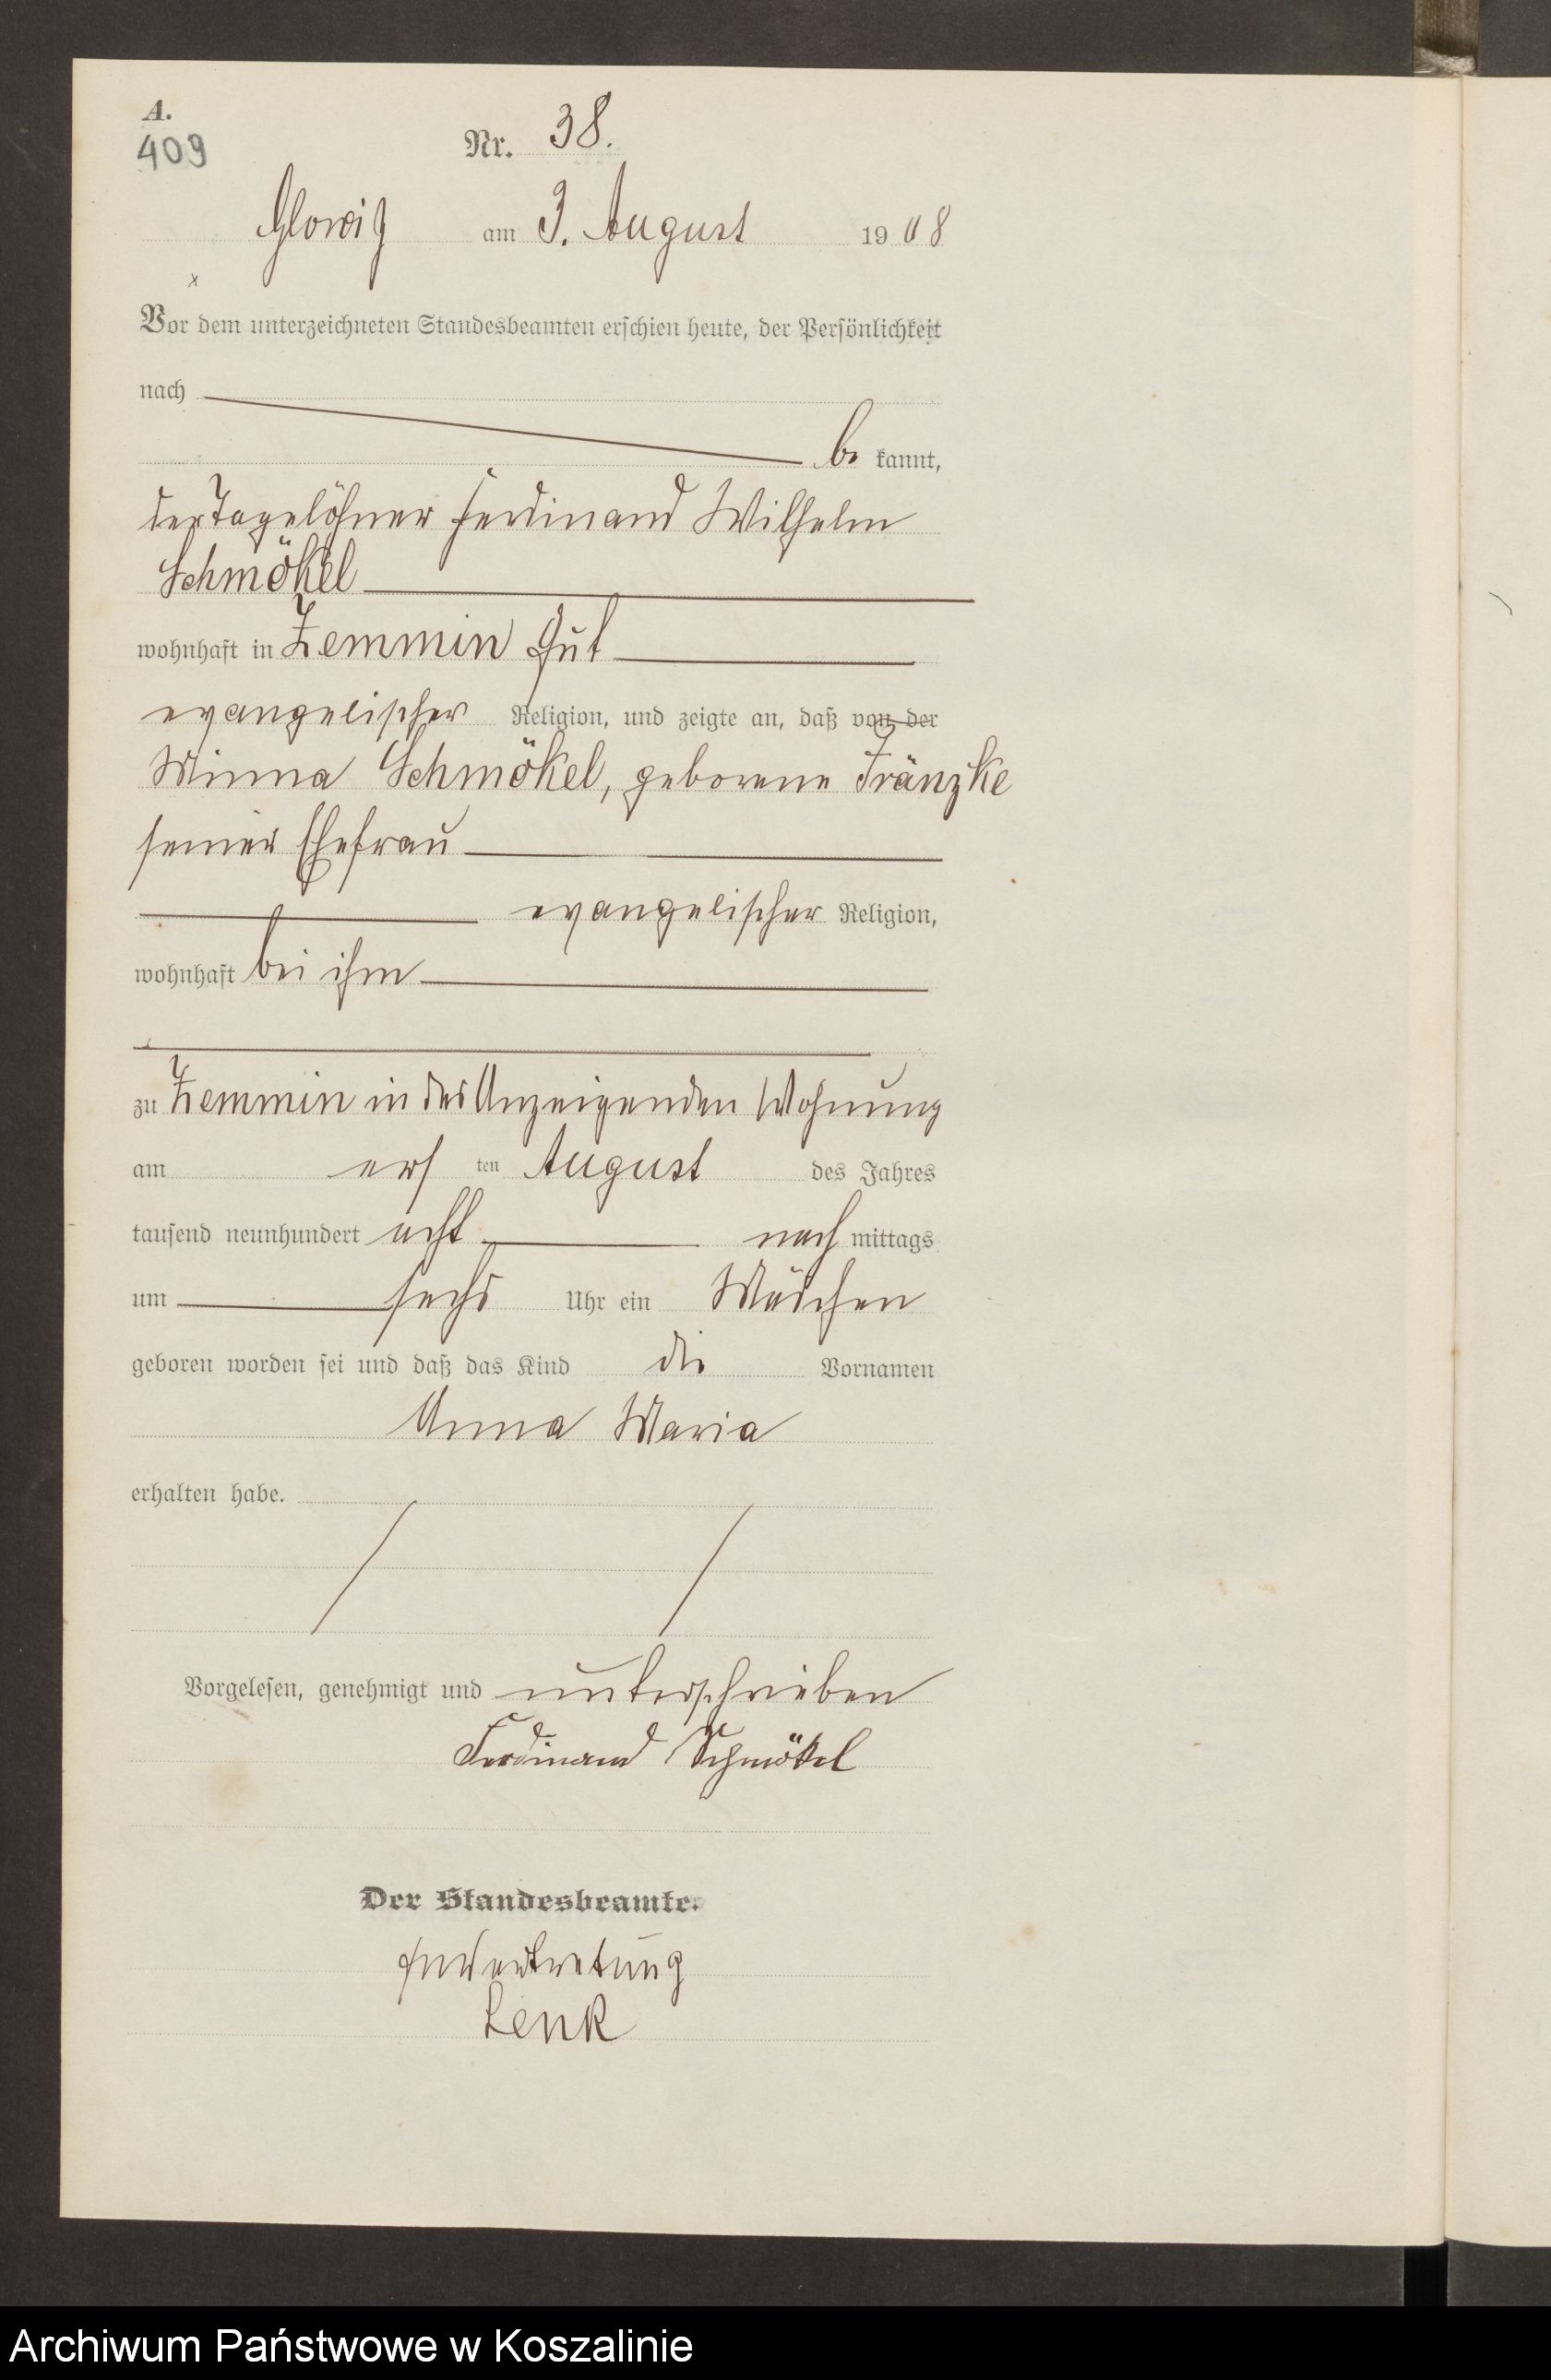 A.
409
Nr. 38.
Glowitz am 3. August 1908
Vor dem unterzeichneten Standesbeamten erschien heute, der Persönlichkeit
nach
be kannt,
der Tagelöhner Ferdinand Wilhelm
Schmökel
wohnhaft in Zemmin Gut
evangelischer Religion, und zeigte an, daß von der
Minna Schmökel, geborene Fränzke
seiner Ehefrau
evangelischer Religion,
wohnhaft bei ihm
zu Zemmin in des Anzeigenden Wohnung
am ersten August des Jahres
tausend neunhundert acht nachmittags
um sechs Uhr ein Mädchen
geboren worden sei und daß das Kind die Vornamen
Anna Maria
erhalten habe.
Vorgelesen, genehmigt und unterschrieben
Ferdinand Schmökel
Der Standesbeamte.
In Vertretung
Lenk
Archiwum Państwowe w Koszalinie